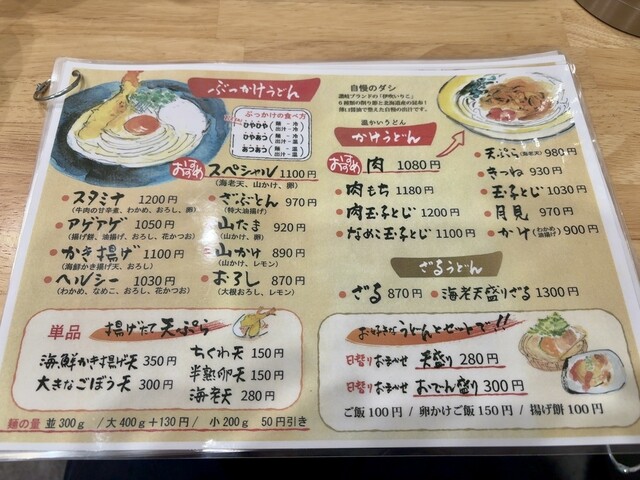 ぶっかけうどん
ぶっかけの食べ方
ひやひや（麺・冷 出汁・冷）
ひやあつ（麺・冷 出汁・温）
あつあつ（麺・温 出汁・温）
おすすめ スペシャル 1100円
（海老天、山かけ、卵）
スタミナ 1200円
（牛肉の甘辛煮、わかめ、おろし、卵）
ざぶとん 970円
（特大油揚げ）
アゲアゲ 1050円
（揚げ餅、油揚げ、おろし、花かつお）
山たま 920円
（山かけ、卵）
かき揚げ 1100円
（海鮮かき揚げ天、おろし）
山かけ 890円
（山かけ、レモン）
ヘルシー 1030円
（わかめ、なめこ、おろし、花かつお）
おろし 870円
（大根おろし、レモン）
自慢のダシ
讃岐ブランドの「伊吹いりこ」
6種類の削り節と北海道産の昆布！
薄口醤油で整えた自慢の出汁です。
温かいうどん
かけうどん
おすすめ 肉 1080円
肉もち 1180円
肉玉子とじ 1200円
なめこ玉子とじ 1100円
天ぷら（海老天） 980円
きつね 930円
玉子とじ 1030円
月見 970円
かけ（わかめ 油揚げ） 900円
ざるうどん
ざる 870円
海老天盛りざる 1300円
単品 揚げたて天ぷら
海鮮かき揚げ天 350円
大きなごぼう天 300円
ちくわ天 150円
半熟卵天 150円
海老天 280円
麺の量 並300g /大400g+130円/ 小200g 50円引き
お好きなうどんとセットで!!
日替りおまかせ 天盛り 280円
日替りおまかせ おでん盛り 300円
ご飯100円 / 卵かけご飯150円 / 揚げ餅100円